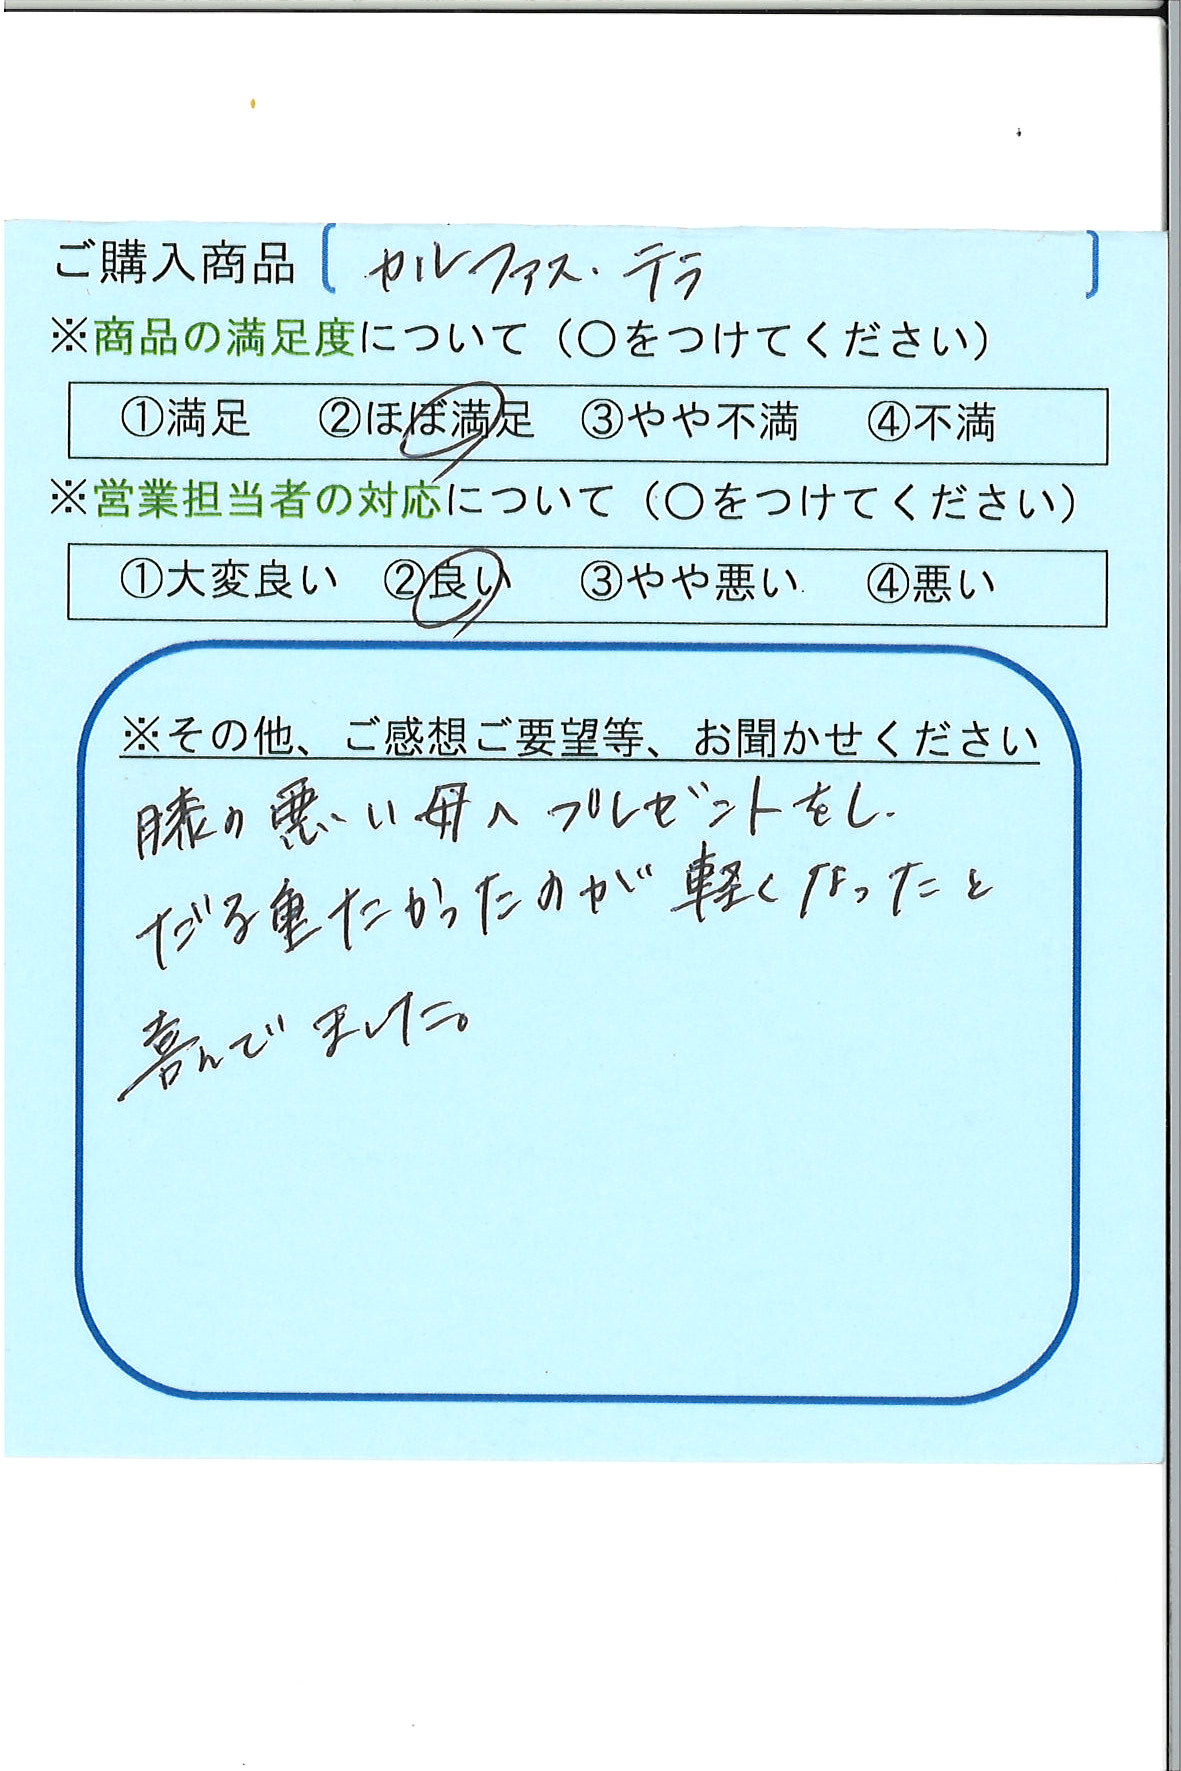 ご購入商品〔セルファス・テラ〕
※商品の満足度について（○をつけてください）
①満足 ②ほぼ満足 ③やや不満 ④不満
※営業担当者の対応について（○をつけてください）
①大変良い ②良い ③やや悪い ④悪い
※その他、ご感想ご要望等、お聞かせください
膝の悪い母へプレゼントをし、
だる重たかったのが軽くなったと
喜んでました。